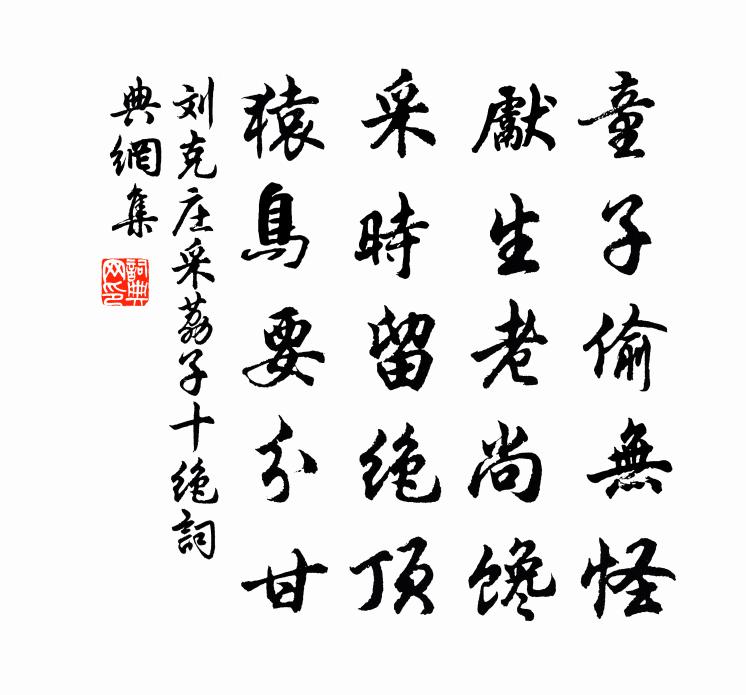 童子偷無怪
獻生老尚馋
采時留绝頂
猿鳥要分甘
刘克庄采荔子十绝詞
典網集
詞典
网印